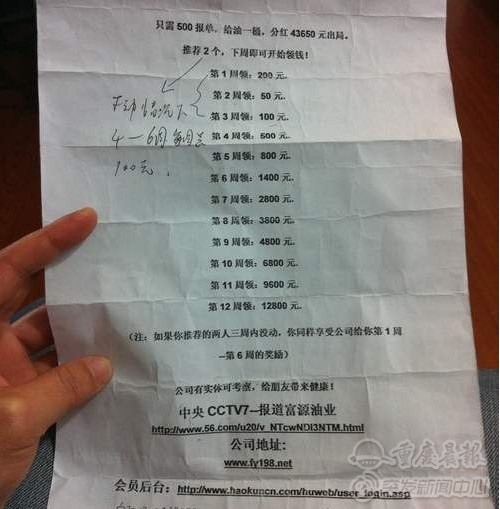 只需 500 报单，给油一桶，分红 43650 元出局。
推荐 2 个，下周即可开始领钱！
第 1 周领：200 元.
第 2 周领：50 元.
第 3 周领：100 元.
第 4 周领：500 元.
第 5 周领：800 元.
第 6 周领：1400 元.
第 7 周领：2800 元.
第 8 周领：3800 元.
第 9 周领：4800 元.
第 10 周领：6800 元.
第 11 周领：9600 元.
第 12 周领：12800 元.
情况下
4－6周每周
100元
（注：如果你推荐的两人三周内没动，你同样享受公司给你第 1 周
--第 6 周的奖励）
公司有实体可考察，给朋友带来健康！
中央 CCTV7--报道富源油业
http://www.56.com/u20/v_NTcwNDI3NTM.html
公司地址：
www.fy198.net
会员后台：http://www.haokuncn.com/huweb/user_login.asp
重庆晨报
突发新闻中心